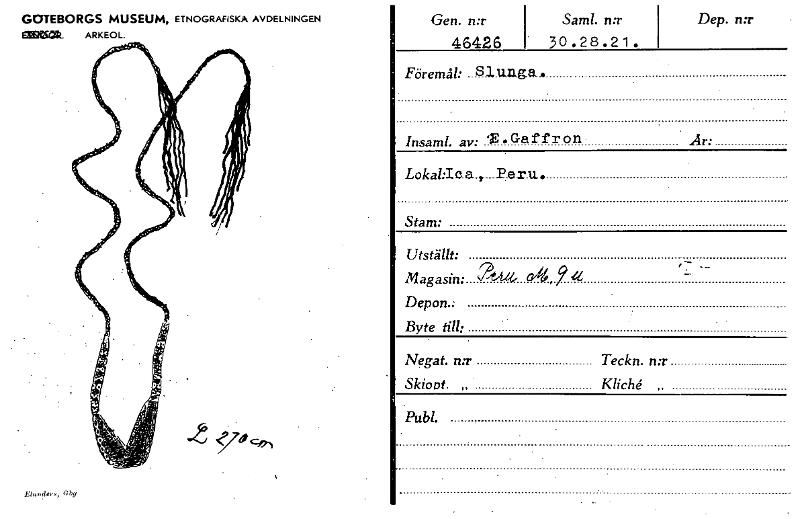 GÖTEBORGS MUSEUM, ETNOGRAFISKA AVDELNINGEN
ARKEOL.
L 270 cm
Elanders, Gbg
Gen. n:r Saml. n:r Dep. n:r
46426 30.28.21.
Föremål: Slunga.
Insaml. av: E.Gaffron År:
Lokal: Ica, Peru.
Stam:
Utställt:
Magasin: Peru M, 9 u
Depon.:
Byte till:
Negat. n:r Teckn. n:r
Skiopt. „ Kliché „
Publ.